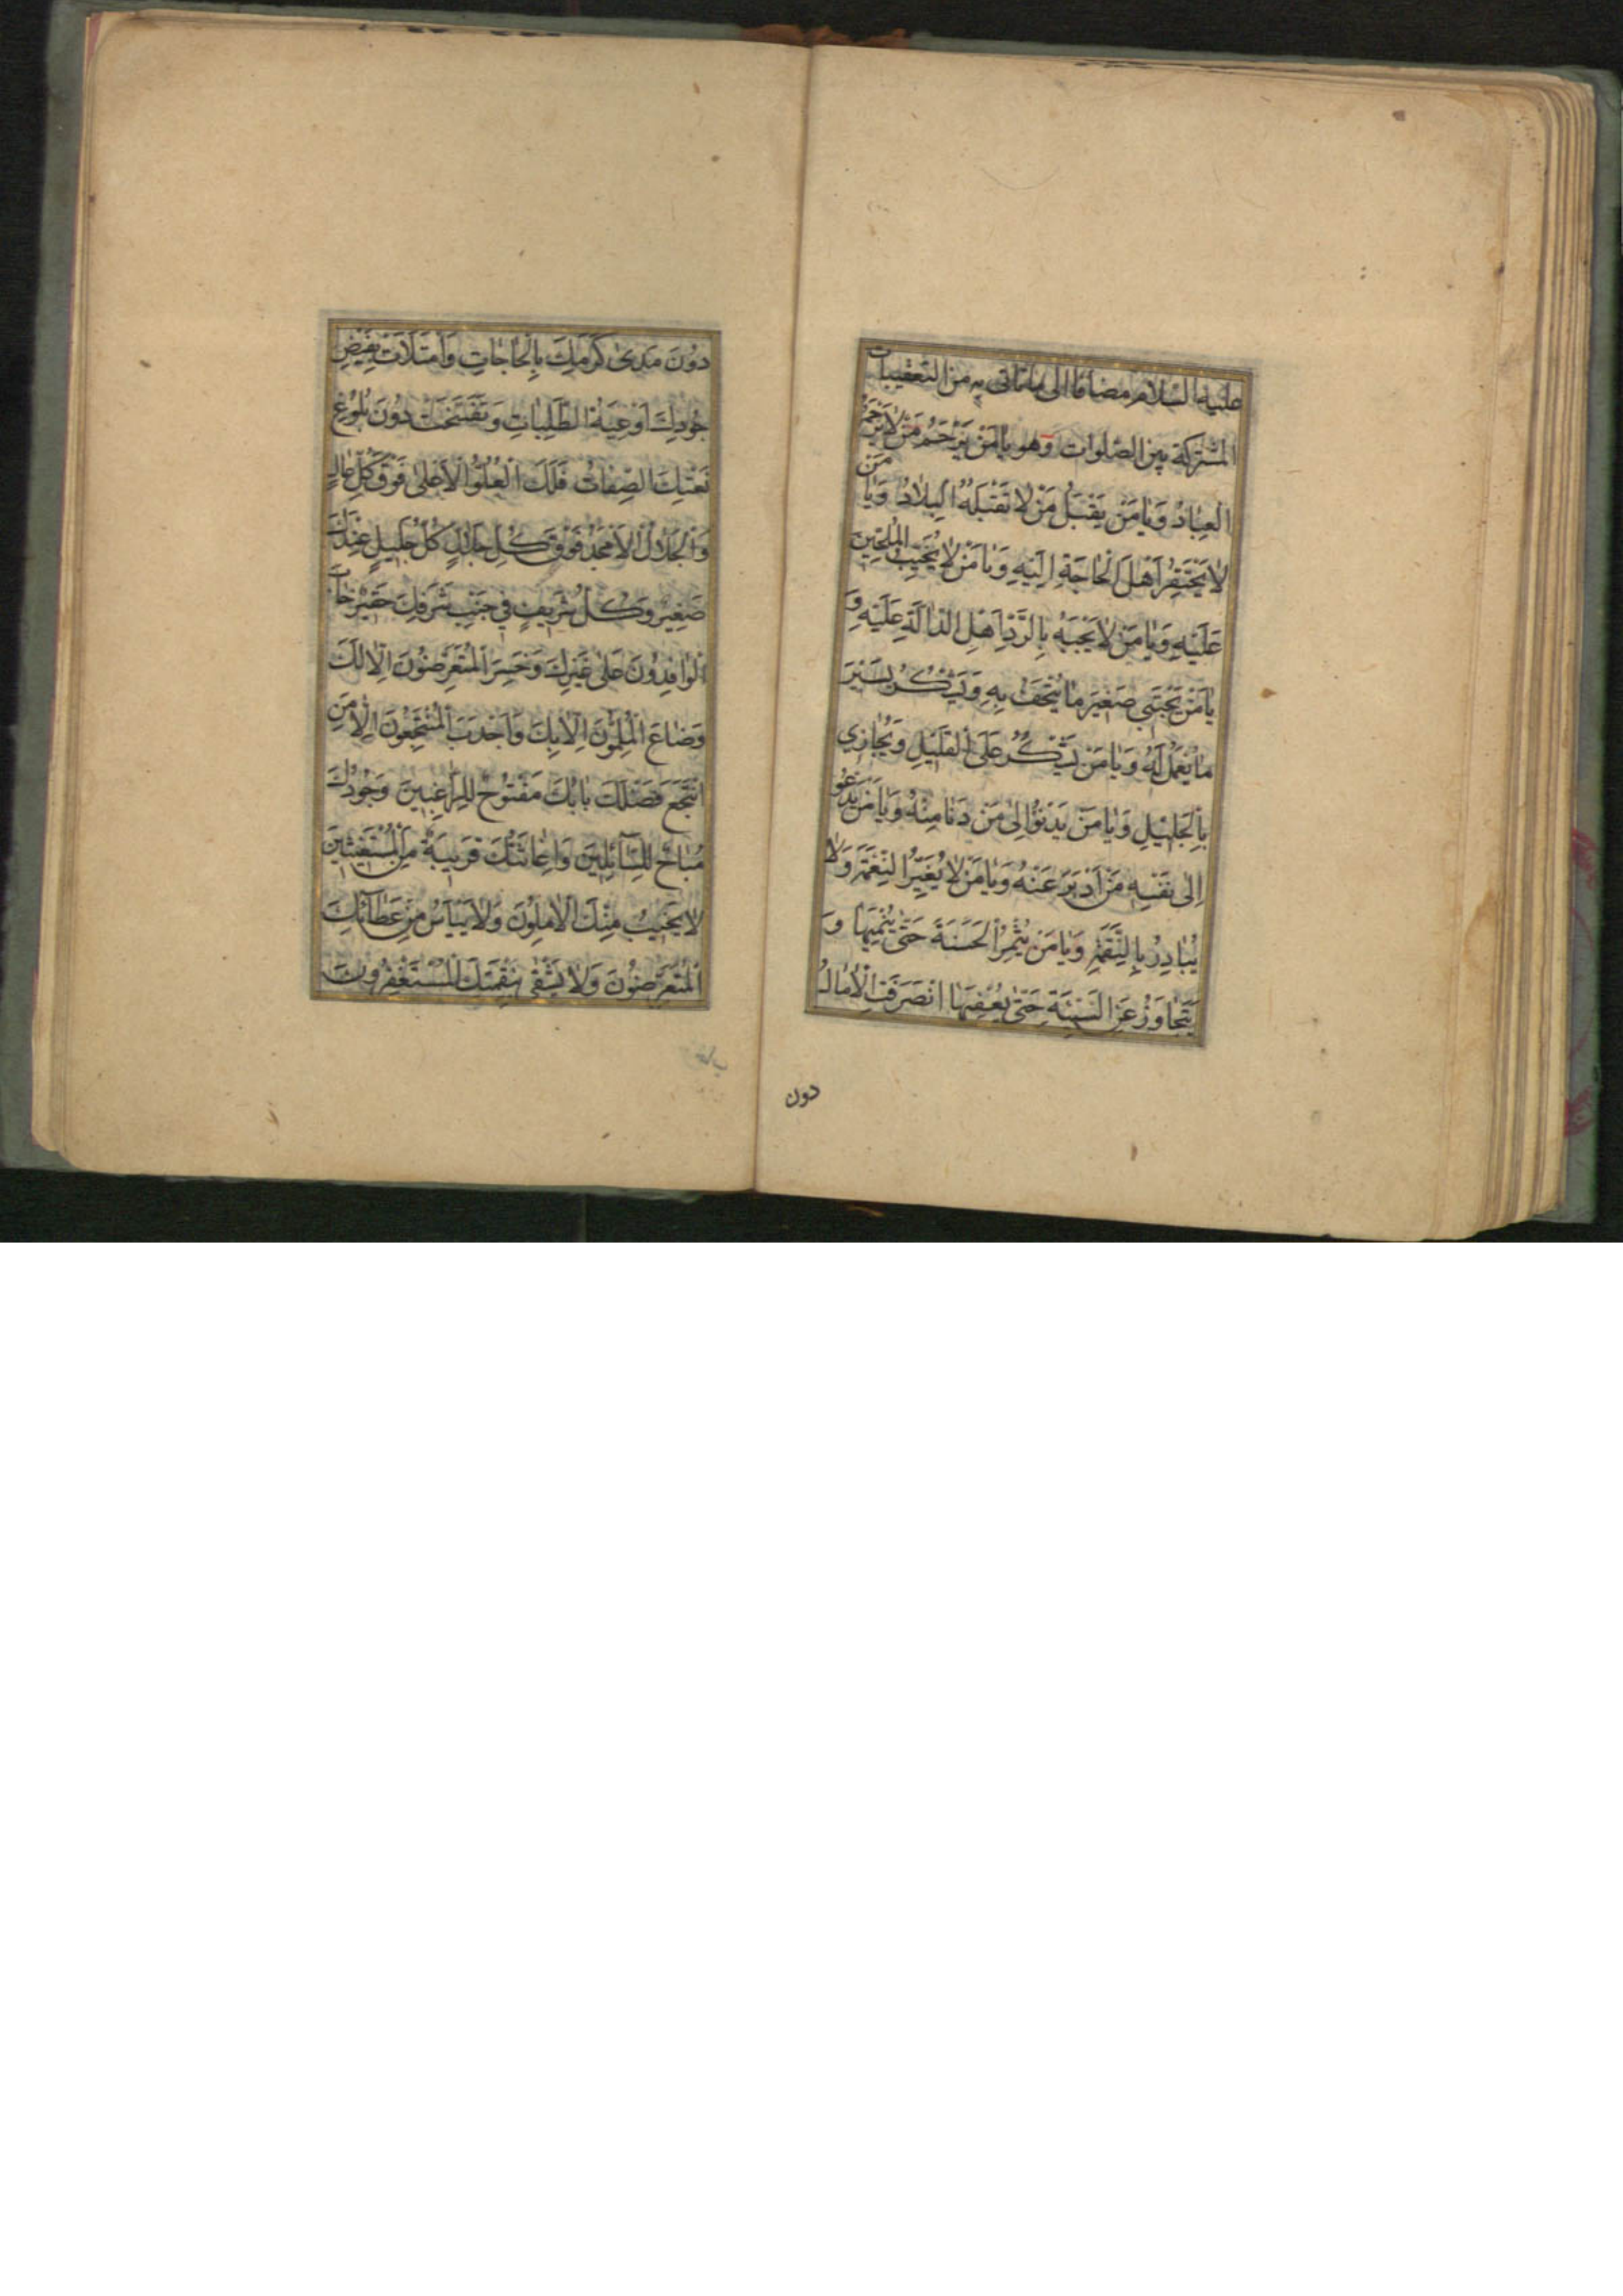 عليه السلام مضافا الى ما يأتى به من التعقيبات
المشتركة بين الصلوات وهو يٰا مَنْ يَرْحَمُ مَنْ لٰا يَرْحَمُهُ
الْعِبٰادُ وَيٰا مَنْ يَقْبَلُ مَنْ لٰا تَقْبَلُهُ الْبِلٰادُ وَيٰا مَنْ
لٰا يَحْتَقِرُ اَهْلَ الْحٰاجَةِ اِلَيْهِ وَيٰا مَنْ لٰا يُخَيِّبُ الْمُلِحّٖينَ
عَلَيْهِ وَيٰا مَنْ لٰا يَجْبَهُ بِالرَّدِّ اَهْلَ الدّٰالَّةِ عَلَيْهِ وَ
يٰا مَنْ يَجْتَبٖى صَغٖيرَ مٰا يُتْحَفُ بِهِ وَيَشْكُرُ يَسٖيرَ
مٰا يُعْمَلُ لَهُ وَيٰا مَنْ يَشْكُرُ عَلَى الْقَلٖيلِ وَيُجٰازٖي
بِالْجَلٖيلِ وَيٰا مَنْ يَدْنُوْ اِلىٰ مَنْ دَنٰا مِنْهُ وَيٰا مَنْ يَدْعُو
اِلىٰ نَفْسِهِ مَنْ اَدْبَرَ عَنْهُ وَيٰا مَنْ لٰا يُغَيِّرُ النِّعْمَةَ وَلٰا
يُبٰادِرُ بِالنِّقْمَةِ وَيٰا مَنْ يُثْمِرُ الْحَسَنَةَ حَتّىٰ يُنْمِيَهٰا وَ
يَتَجٰاوَزُ عَنِ السَّيِّئَةِ حَتّىٰ يُعَفِّيَهٰا انْصَرَفَتِ الْاٰمٰالُ
دون
دُوْنَ مَدىٰ كَرَمِكَ بِالْحٰاجٰاتِ وَامْتَلَاَتْ بِفَيْضِ
جُوْدِكَ اَوْعِيَةُ الطَّلِبٰاتِ وَتَفَسَّخَتْ دُوْنَ بُلُوْغِ
نَعْتِكَ الصِّفٰاتُ فَلَكَ الْعُلُوُّ الْاَعْلىٰ فَوْقَ كُلِّ عٰالٍ
وَالْجَلٰالُ الْاَمْجَدُ فَوْقَ كُلِّ جَلٰالٍ كُلُّ جَلٖيلٍ عِنْدَكَ
صَغٖيرٌ وَكُلُّ شَرٖيفٍ فٖي جَنْبِ شَرَفِكَ حَقٖيرٌ خٰابَ
الْوٰافِدُوْنَ عَلىٰ غَيْرِكَ وَخَسِرَ الْمُتَعَرِّضُوْنَ اِلّٰا لَكَ
وَضٰاعَ الْمُلِمُّوْنَ اِلّٰا بِكَ وَاَجْدَبَ الْمُنْتَجِعُوْنَ اِلّٰا مَنِ
انْتَجَعَ فَضْلَكَ بٰابُكَ مَفْتُوْحٌ لِلرّٰاغِبٖينَ وَجُوْدُكَ
مُبٰاحٌ لِلسّٰائِلٖينَ وَاِغٰاثَتُكَ قَرٖيبَةٌ مِنَ الْمُسْتَغٖيثٖينَ
لٰا يَخٖيبُ مِنْكَ الْاٰمِلُوْنَ وَلٰا يَيْاَسُ مِنْ عَطٰائِكَ
الْمُتَعَرِّضُوْنَ وَلٰا يَشْقىٰ بِنِقْمَتِكَ الْمُسْتَغْفِرُوْنَ